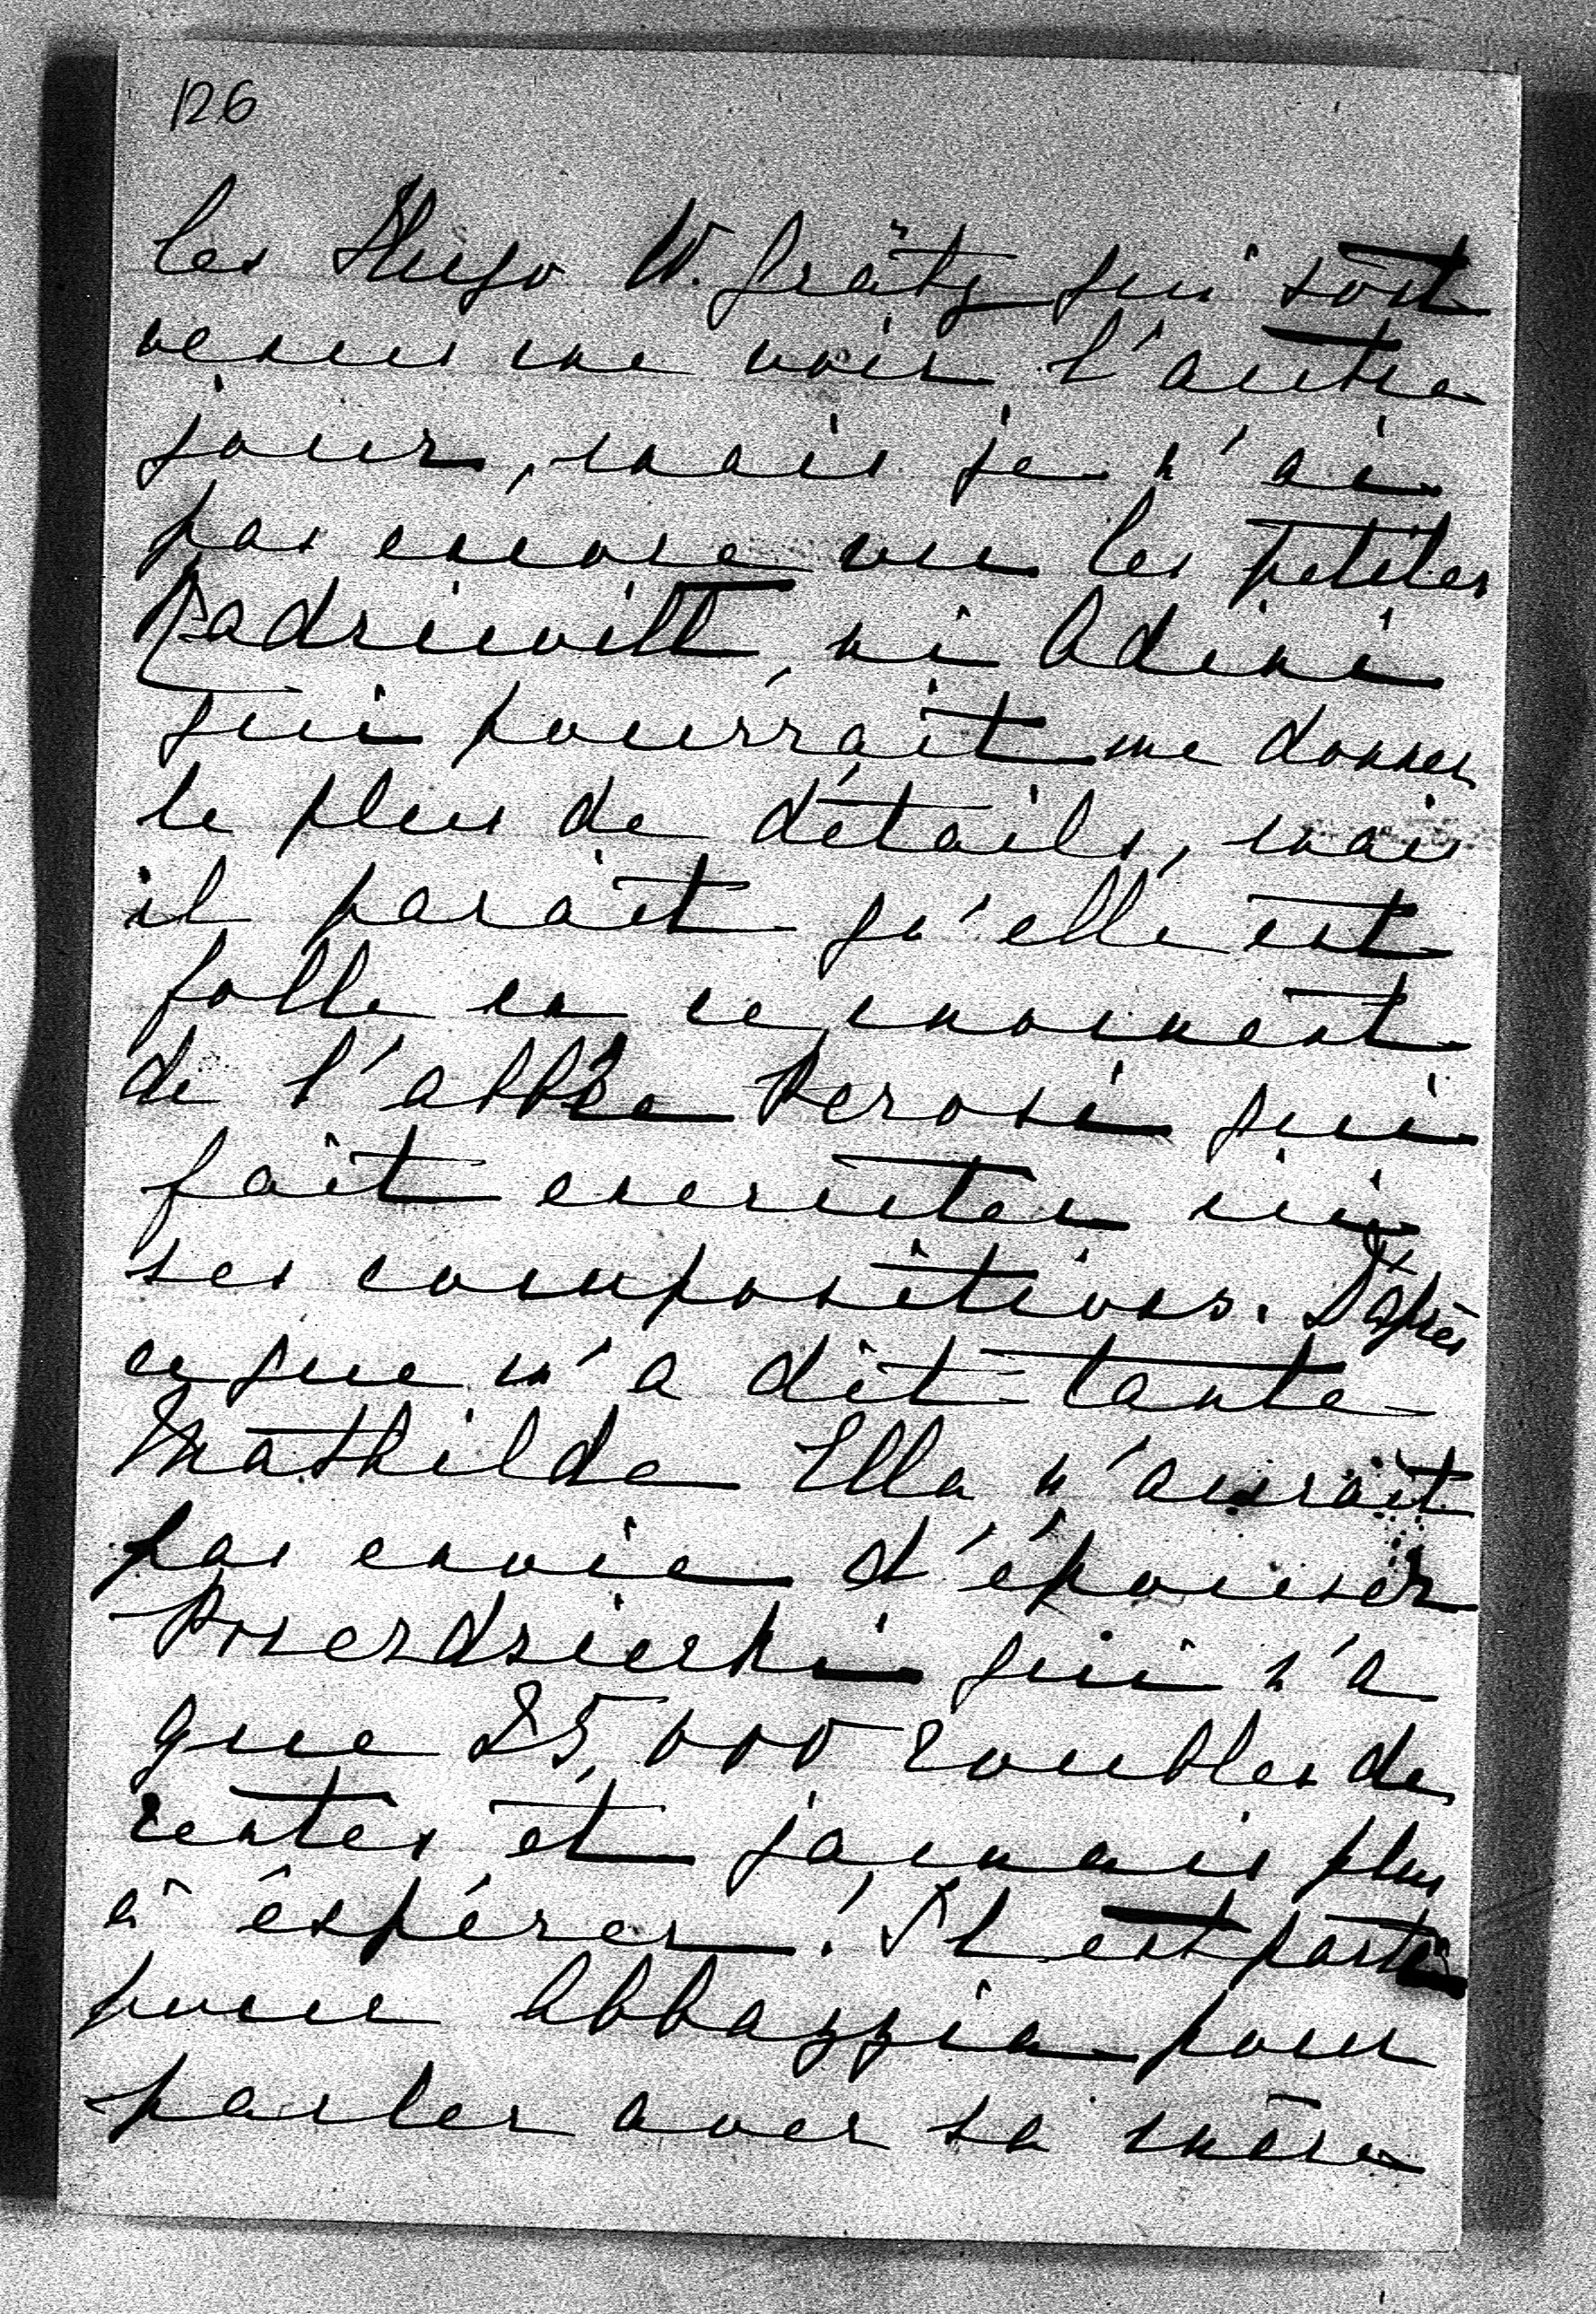 126
les Hugo W. grätz qui sont
venus me voir l'autre
jour, mais je n'ai
pas encore vu les petites
Radziwill, ni Adini
qui pourrait me donner
le plus de détails, mais
il parait qu'elle est
folle en ce moment
de l'abbé Perosi qui
fait executer ici
ses compositions. D'après
ce que m'a dit tante
Mathilde Ella n'aurait
pas envie d'épouser
qui n'a
que 25,000 roubles de
rentes et jamais plus
à éspérer. Il est parti
pour Abbazzia pour
parler avec sa mère